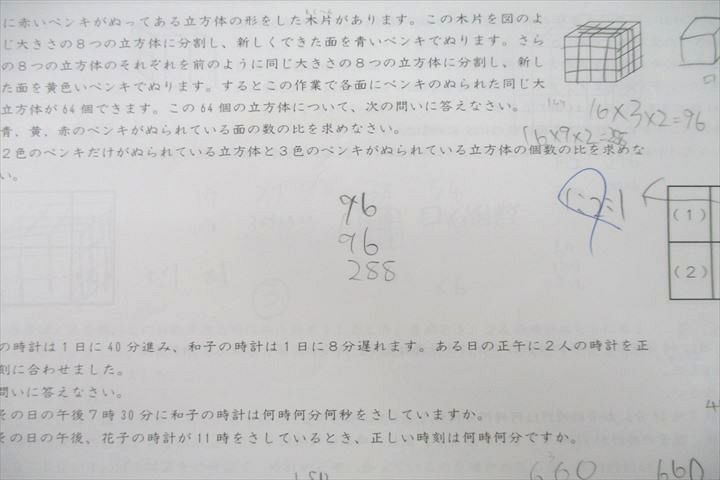 に赤いペンキがぬってある立方体の形をした木片があります。この木片を図のよ
じ大きさの８つの立方体に分割し、新しくできた面を青いペンキでぬります。さら
の８つの立方体のそれぞれを前のように同じ大きさの８つの立方体に分割し、新し
た面を黄色いペンキでぬります。するとこの作業で各面にペンキのぬられた同じ大
立方体が64個できます。この64個の立方体について、次の問いに答えなさい。
青、黄、赤のペンキがぬられている面の数の比を求めなさい。
２色のペンキだけがぬられている立方体と３色のペンキがぬられている立方体の個数の比を求めな
い。
16×3×2=96
16×9×2=288
96
96
288
1:2:1
(1)
(2)
の時計は１日に40分進み、和子の時計は１日に８分遅れます。ある日の正午に２人の時計を正
刻に合わせました。
問いに答えなさい。
その日の午後７時30分に和子の時計は何時何分何秒をさしていますか。
その日の午後、花子の時計が11時をさしているとき、正しい時刻は何時何分ですか。
660
660